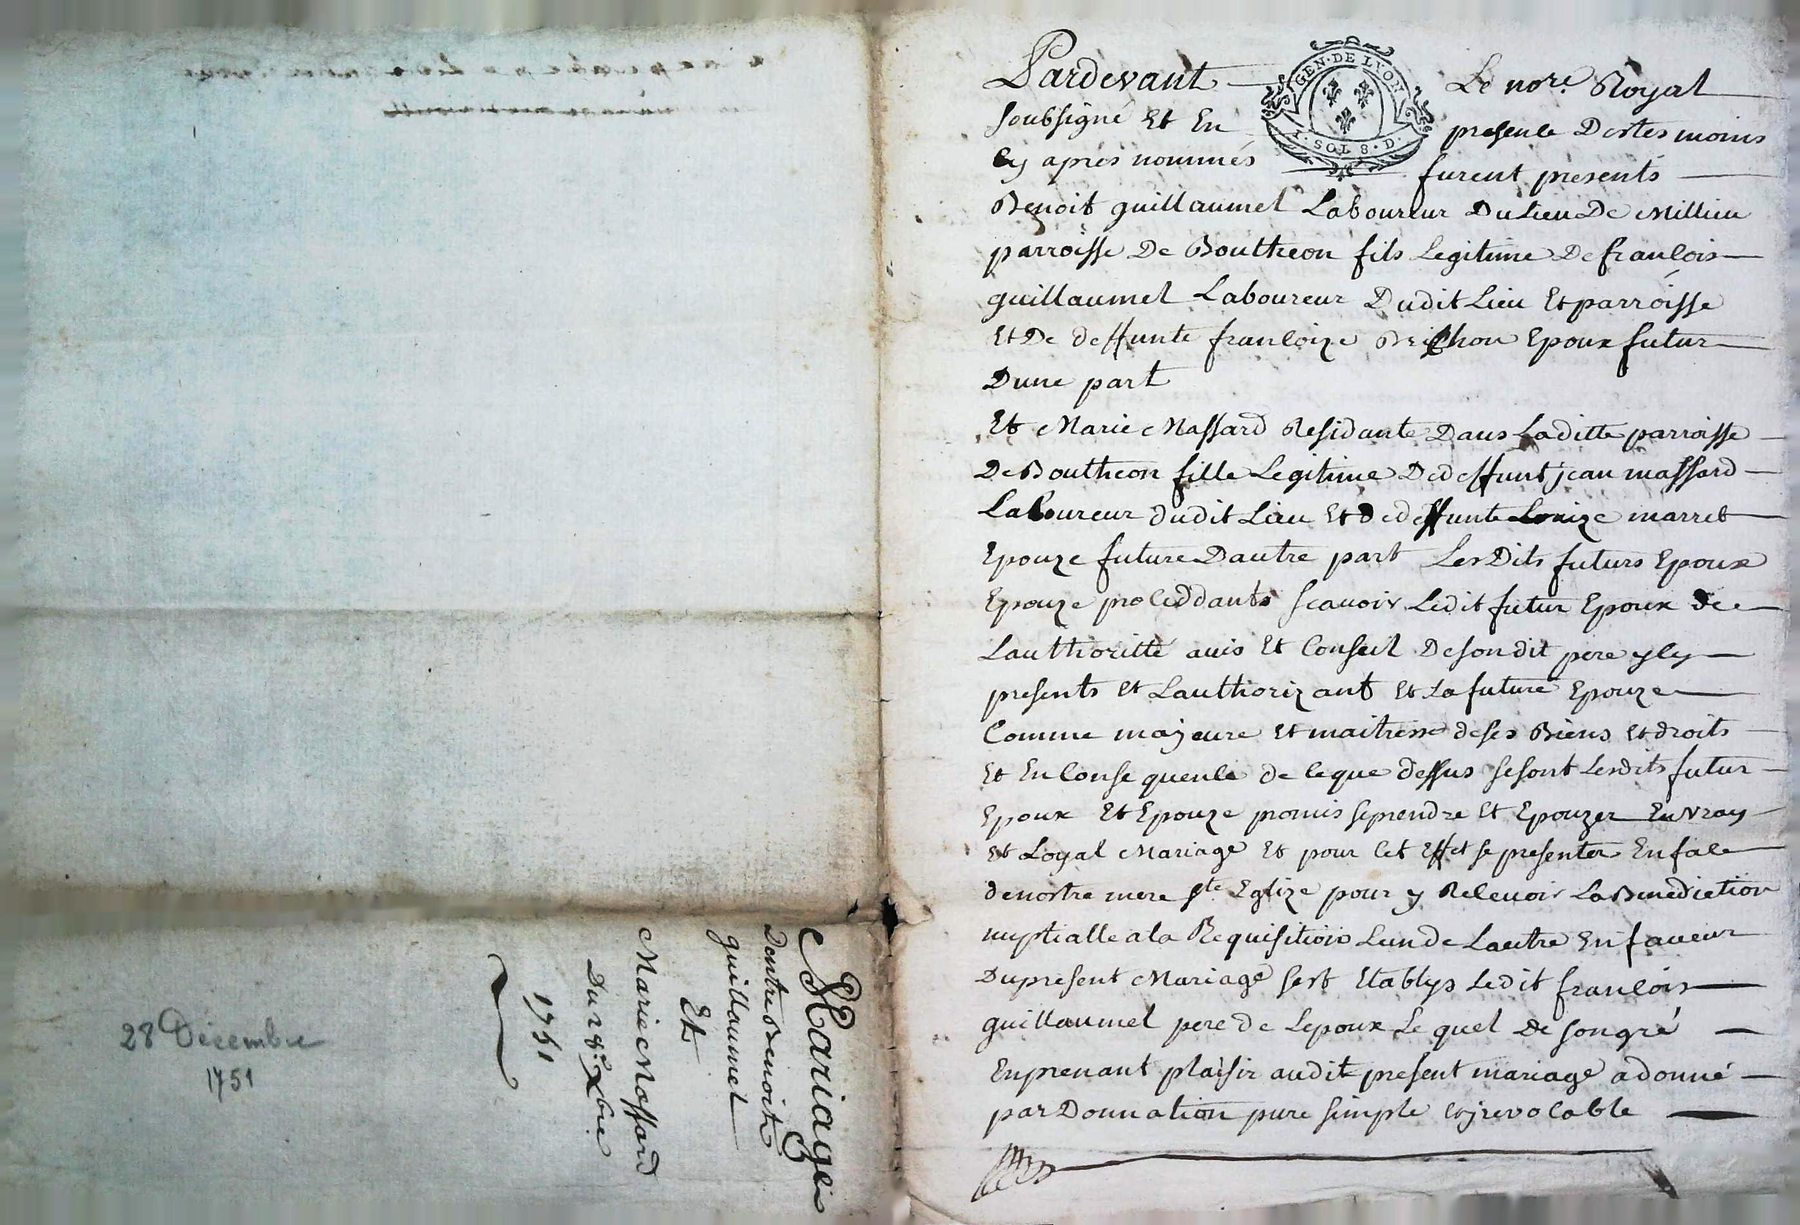 Mariage
Dentre Benoit
guillaumel
Et
Marie Massard
Du 28e Xbre
1751
28 Décembre
1751
GEN·DE LYON
SOLS 8·D·
Pardevant Le nore. Royal
soubsigné Et En presence Des tesmoins
Cy après nommés furent présents
Benoit guillaumel Laboureur Du Lieu De Millieu
parroisse De Boutheon fils Legitime De francois
guillaumel Laboureur Dudit Lieu Et parroisse
Et De deffunte francoize Brichon Epoux futur
Dune part
Et Marie Massard Residante Dans Laditte parroisse
De Boutheon fille Legitime De deffunt jean massard
Laboureur dudit Lieu Et de deffunte Louize marret
Epouze future Dautre part Les Dits futurs Epoux
Epouze proceddants scavoir Ledit futur Epoux de
Lauthoritté avis Et Conseil De son dit pere ycy
presents et Lauthorizant Et La future Epouze
Comme majeure Et maitresse de ses Biens Et droits
Et En Consequence de ce que dessus se sont Lesdits futur
Epoux Et Epouze promis se prendre Et Epouzer En vray
Et Loyal Mariage Et pour Cet Effet se presenter En face
de nostre mere ste Eglize pour y Recevoir La Benediction
nuptialle a la Requisition Lun de Lautre En faveur
Du present Mariage sest Etablys Ledit francois
guillaumel pere de Lepoux Le quel De son gré
En prenant plaisir audit present mariage a donné
par Donnation pure simple et jrevocable